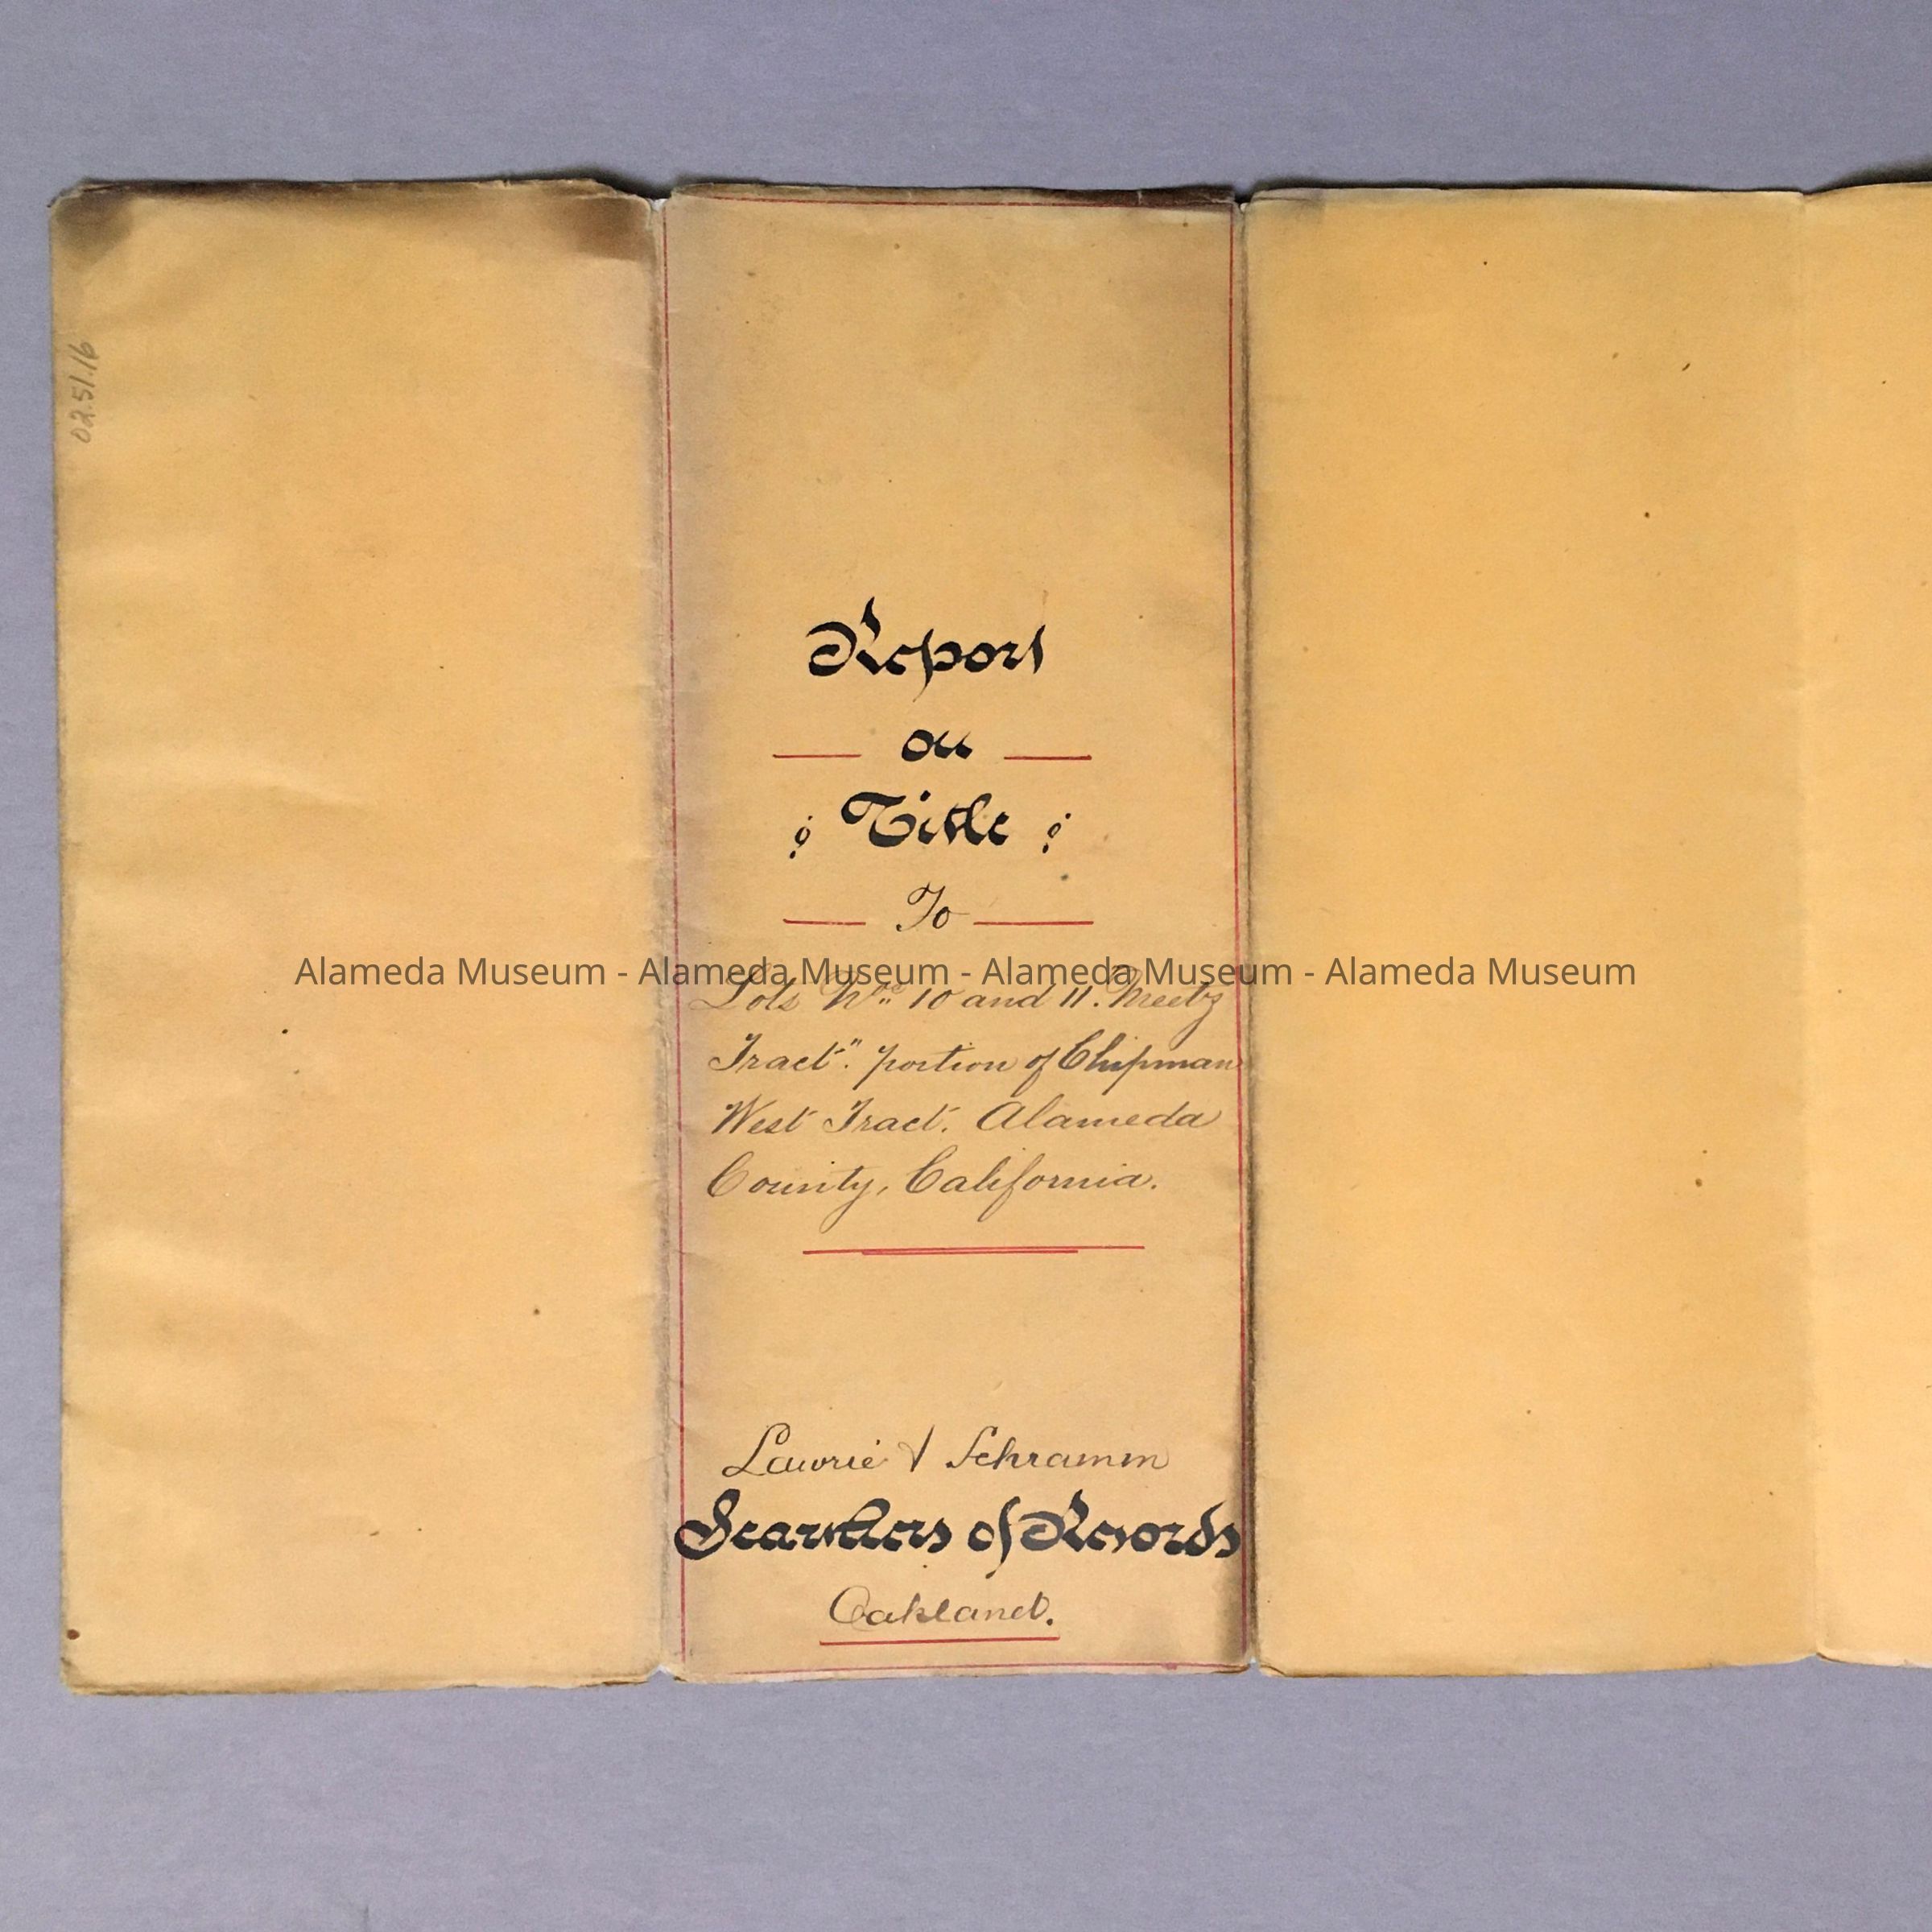 02.51.16
Report
on
Title
To
Alameda Museum - Alameda Museum - Alameda Museum - Alameda Museum
Lots Nos 10 and 11. Meetz
Tract". portion of Chipman
West Tract. Alameda
County, California.
Lawrie & Schramm
Searchers of Records
Oakland.